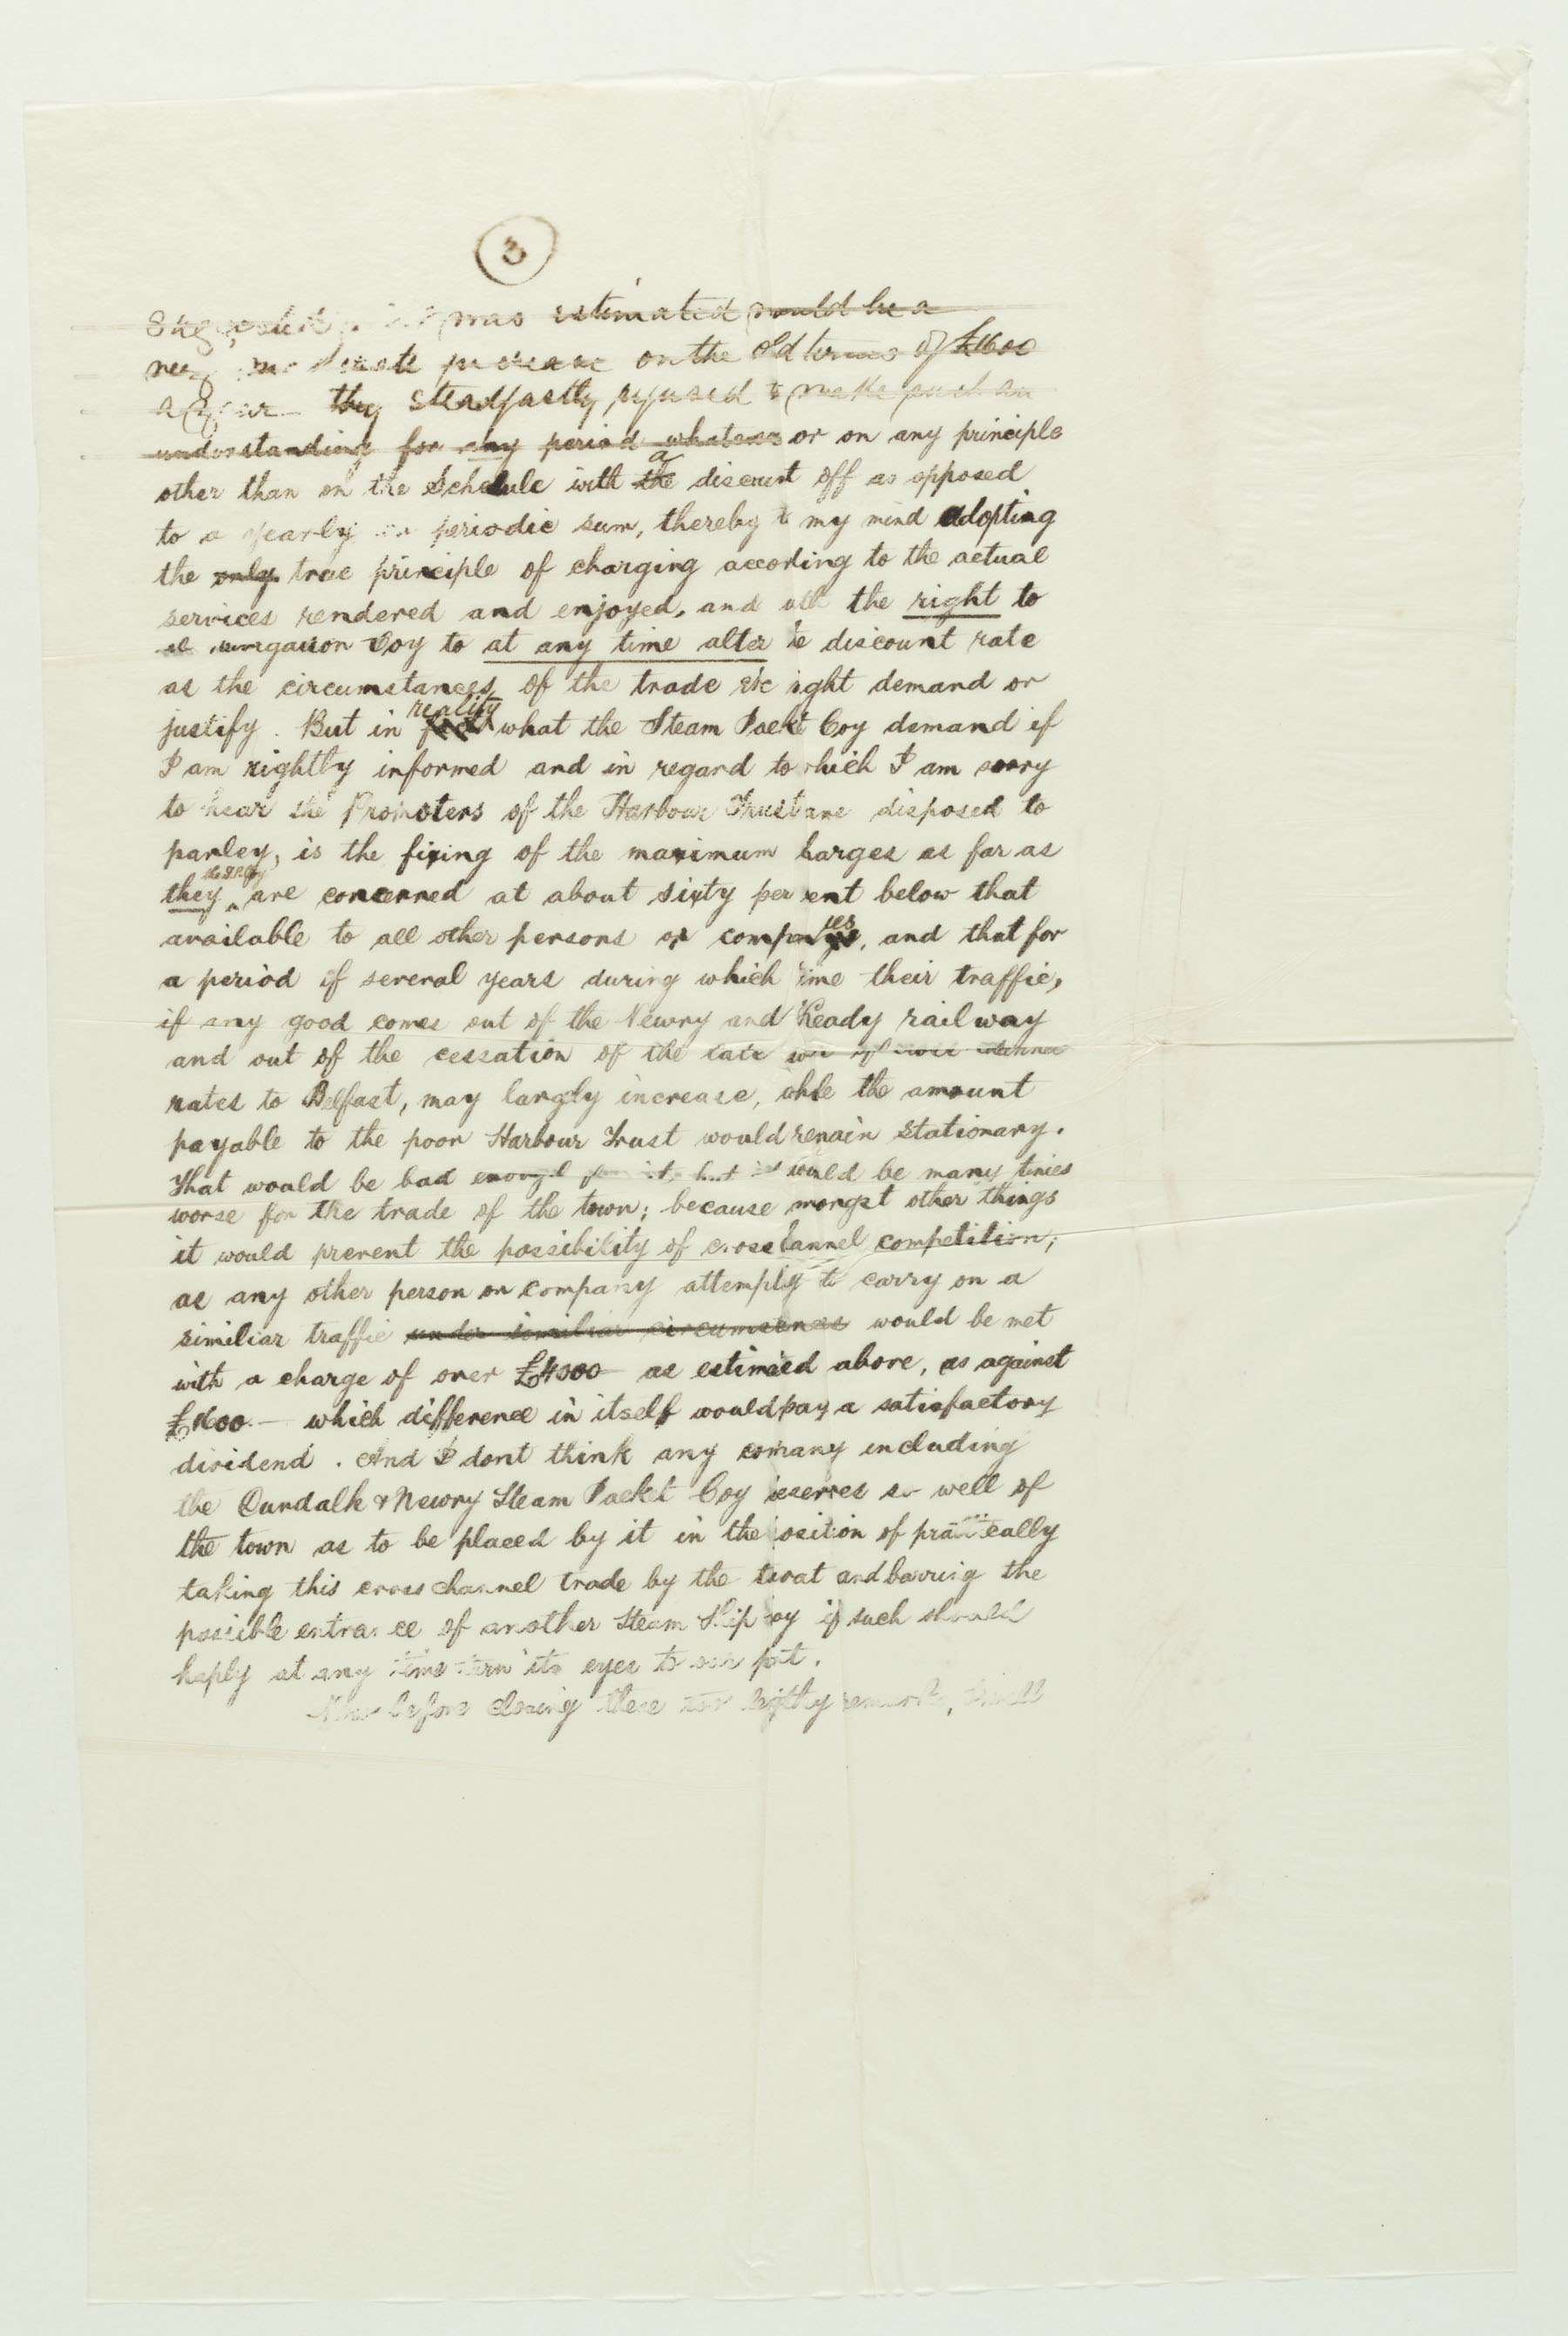 3
was estimated would be a
moderate increase on the old terms of £1600
a year – they steadfastly refused to make such an
understanding for any period whatever or on any principle
other than on the Schedule with the a discount off as opposed
to a yearly or periodic sum, thereby to my mind adopting
the only true principle of charging according to the actual
services rendered and enjoyed, and the right to
Coy to at any time alter the discount rate
as the circumstances of the trade etc ight demand or
justify. But in reality what the Steam Packt Coy demand if
I am rightly informed and in regard to which I am sorry
to hear the Promoters of the Harbour Trust are disposed to
parley, is the fixing of the maximum harges as far as
they the S.P. Coy are concerned at about sixty per ent below that
available to all other persons or companies, and that for
a period of several years during which time their traffic,
if any good comes out of the Newry and Keady railway
and out of the cessation of the late
rates to Belfast, may largely increase, while the amount
payable to the poor Harbour Trust would remain stationary.
That would be bad enough for it, but it would be many times
worse for the trade of the town; because mongst other things
it would prevent the possibility of cross channel competition;
as any other person or company attempting to carry on a
similiar traffic under similiar circumstances would be met
with a charge of over £4000 – as estimated above, as against
£1600. – which difference in itself would pay a satisfactory
dividend. And I dont think any company including
the Dundalk & Newry Steam Packet Coy deserves so well of
the town as to be placed by it in the position of practically
taking this cross channel trade by the throat and barring the
possible entrance of another Steam Ship Coy if such should
haply at any time turn its eyes to our port.
Now before closing these too lengthy remarks, I will